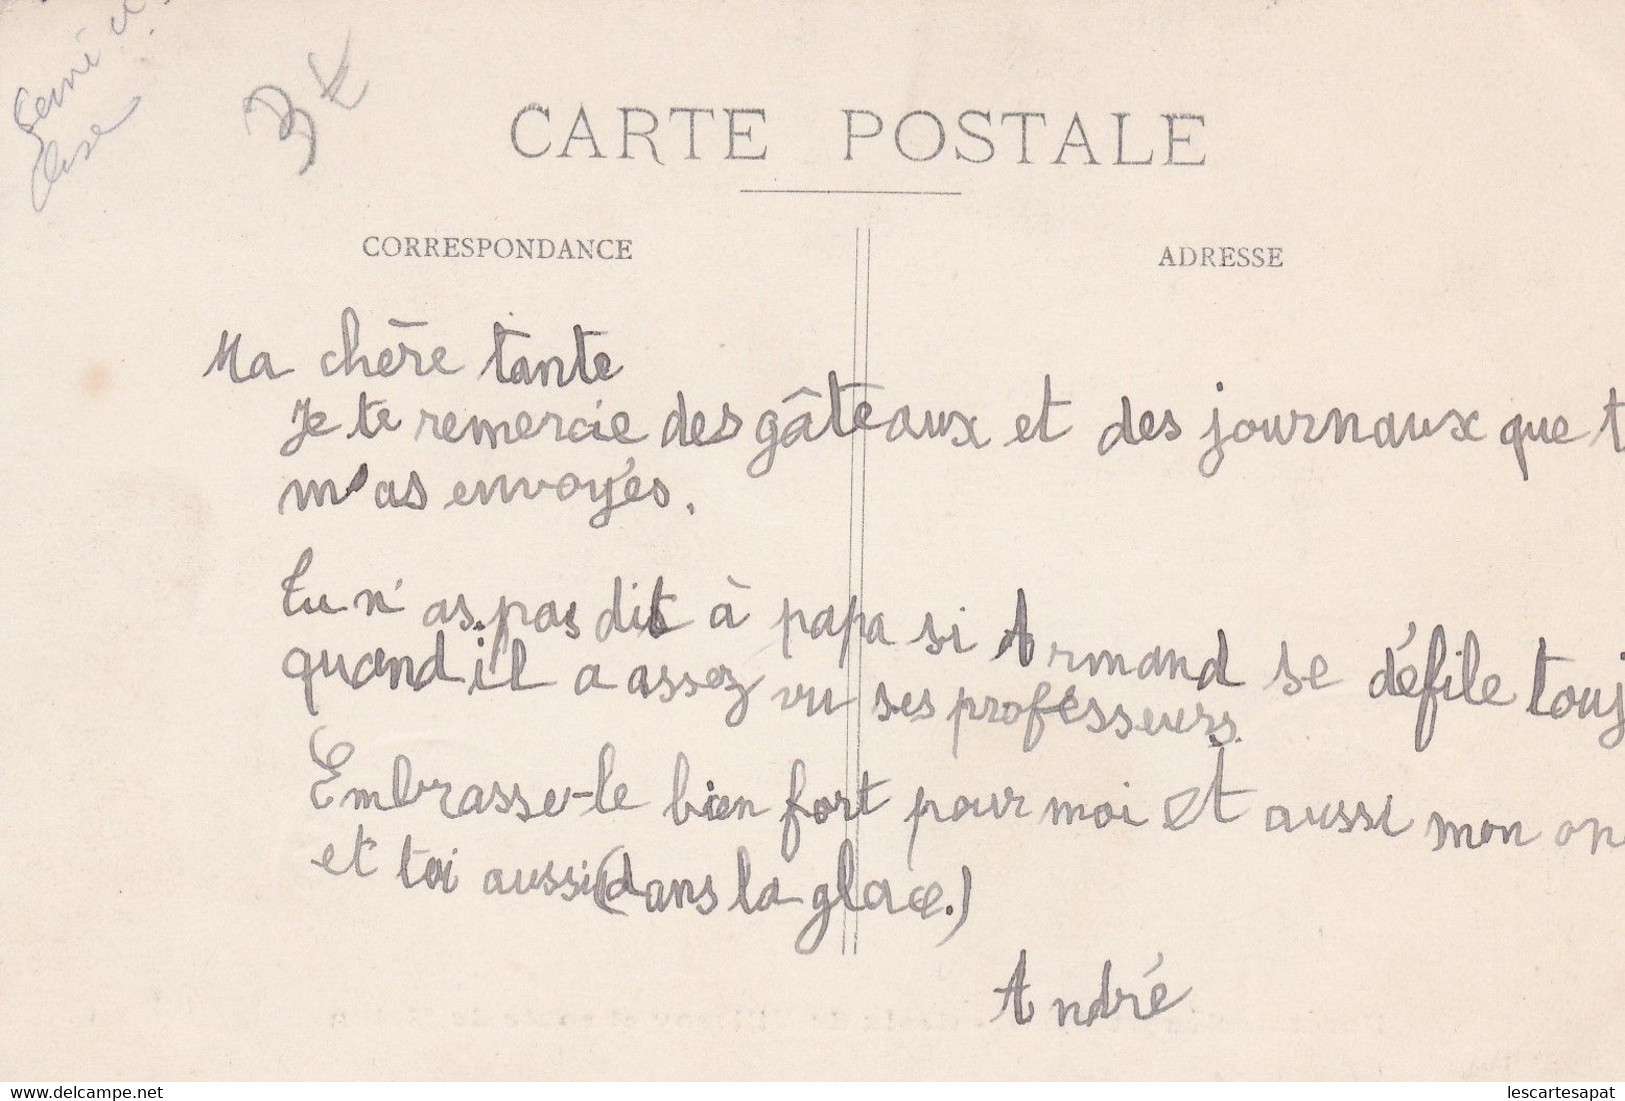 3 €
CARTE POSTALE
CORRESPONDANCE
ADRESSE
Ma chère tante
Je te remercie des gâteaux et des journaux que t
m'as envoyés.
Tu n'as pas dit à papa si Armand se défile touj
quand il a assez vu ses professeurs.
Embrasse-le bien fort pour moi et aussi mon on
et toi aussi (dans la glace.)
André
delcampe.net
lescartesapat